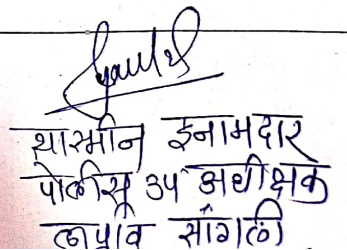 यास्मीन इनामदार
पोलीस उप अधीक्षक
लाप्रवि सांगली